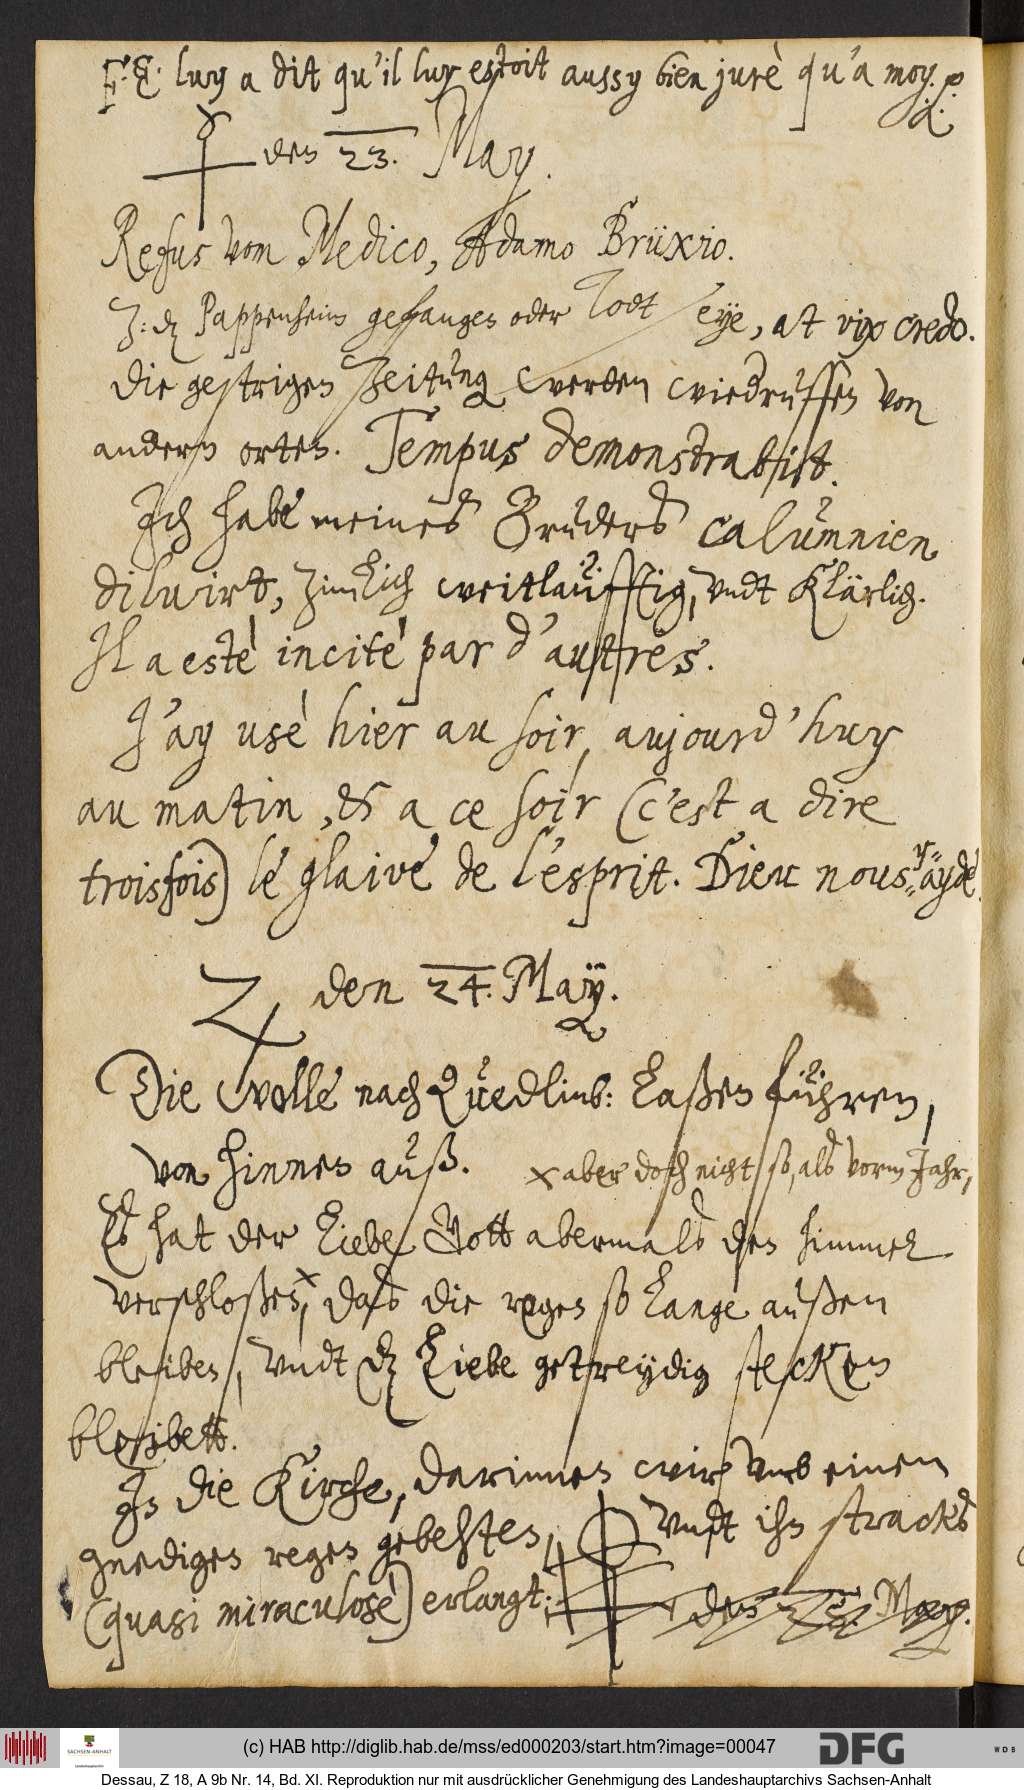 F. E. luy a dit qu'il luy estoit aussy bien jurè qu'a moy. p.
☿ den 23. May.
Refus vom Medico, Adamo Brüxio.
Z: dz Pappenheim gefangen oder Todt seye, at vix credo.
Die gestrigen Zeitung werden wiedruffen von
andern orten. Tempus demonstrabit.
Ich habe meines Bruders calumnien
diluirt, zimlich weitlaüfftig, vndt Klärlich.
Il a estè incitè par d'autres.
J'ay usè hier au soir, aujourd'huy
au matin, & a ce soir (c'est a dire
trois fois) le glaive de l'esprit. Dieu nous y ayde.
♃ den 24. May.
Die wolle nach Quedlinb: laßen führen,
von hinnen auß.
x aber doch nicht so, als vorm Jahr,
Es hat der liebe Gott abermals den himmel
verschloßen, x daß die regen so lange außen
bleiben, vndt dz liebe getreydig stecken
bleibett.
In die Kirche, darinnen wir vmb einen
gnedigen regen gebehten, vndt ihn stracks
(quasi miraculosè) erlangt:
den 25. May.
(c) HAB http://diglib.hab.de/mss/ed000203/start.htm?image=00047
SACHSEN-ANHALT
DFG
WDB
Dessau, Z 18, A 9b Nr. 14, Bd. XI. Reproduktion nur mit ausdrücklicher Genehmigung des Landeshauptarchivs Sachsen-Anhalt